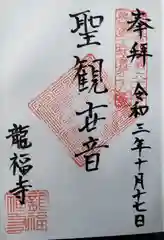 奉拝
令和三年十月十七日
聖観世音
龍福寺